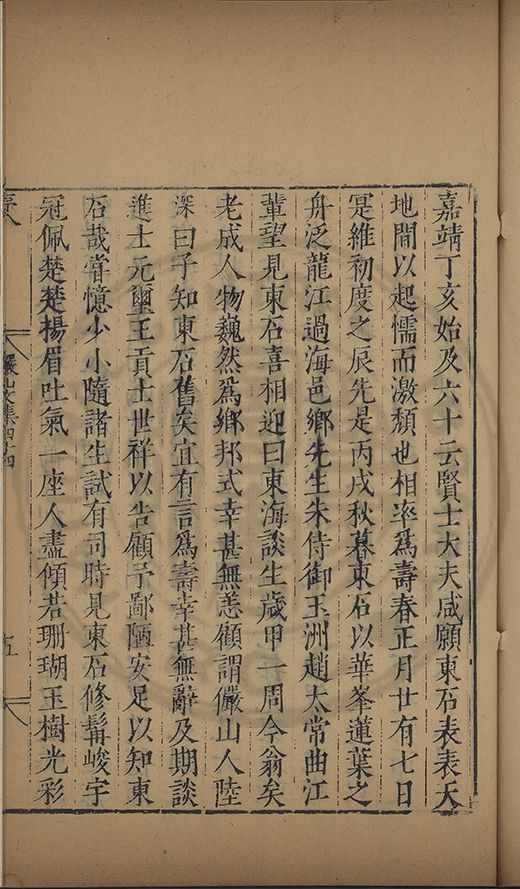 嘉靖丁亥始及六十云賢士大夫咸願東石表表天
地間以起懦而激頹也相率爲壽春正月廿有七日
寔維初度之辰先是丙戌秋暮東石以華峯蓮葉之
舟泛龍江過海邑鄉先生朱侍御玉洲趙太常曲江
輩望見東石喜相迎曰東海談生歲甲一周今翁矣
老成人物巍然爲鄉邦式幸甚無恙顧謂儼山人陸
深曰子知東石舊矣宜有言爲壽幸甚無辭及期談
進士元璽王貢士世祥以告顧予鄙陋安足以知東
石哉嘗憶少小隨諸生試有司時見東石修髯峻宇
冠佩楚楚揚眉吐氣一座人盡傾若珊瑚玉樹光彩
儼山文集四十四
五